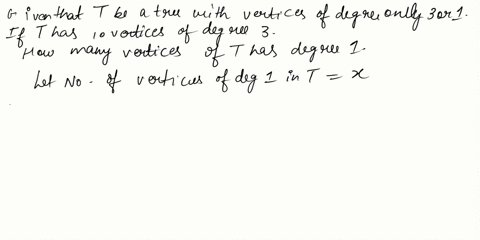 Given that T be a tree with vertices of degree only 3 or 1.
If T has 10 vertices of degree 3.
How many vertices of T has degree 1.
Let No. of vertices of deg 1 in T = x